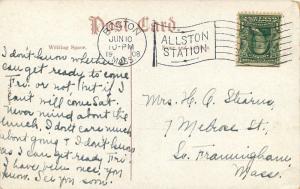 Post Card.
Writing Space.
BOSTON
JUN 10
10-PM
1908
MASS
ALLSTON
STATION
I don't know whether I
can get ready to come
Fri. or not. But if I
can't will come Sat.
never mind about the
lunch. I don't care much
about going & I don't know
as I can get ready Fri.
I have been over you
know. See you soon.
Mrs. H. A. Stearns,
7 Melrose St.,
So. Framingham,
Mass.